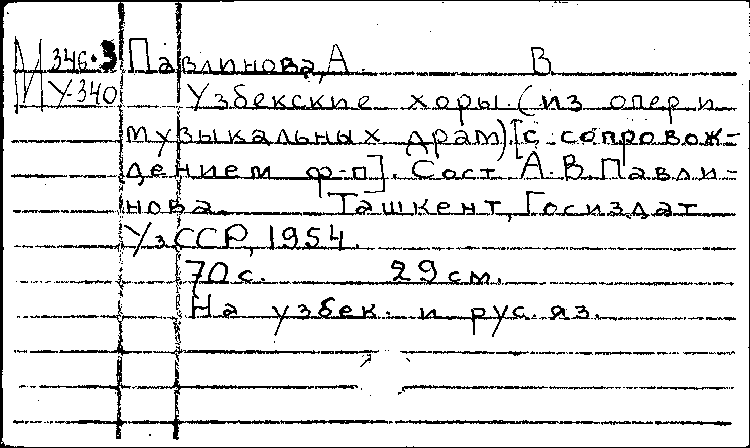 М 346.3 Павлинова, А. В
У340 Узбекские хоры. (из опер и
музыкальных драм) [с сопровож-
дением ф-п]. Сост А.В. Павли-
нова Ташкент, Госиздат
УзССР, 1954.
70 с. 29 см.
На узбек. и рус. яз.